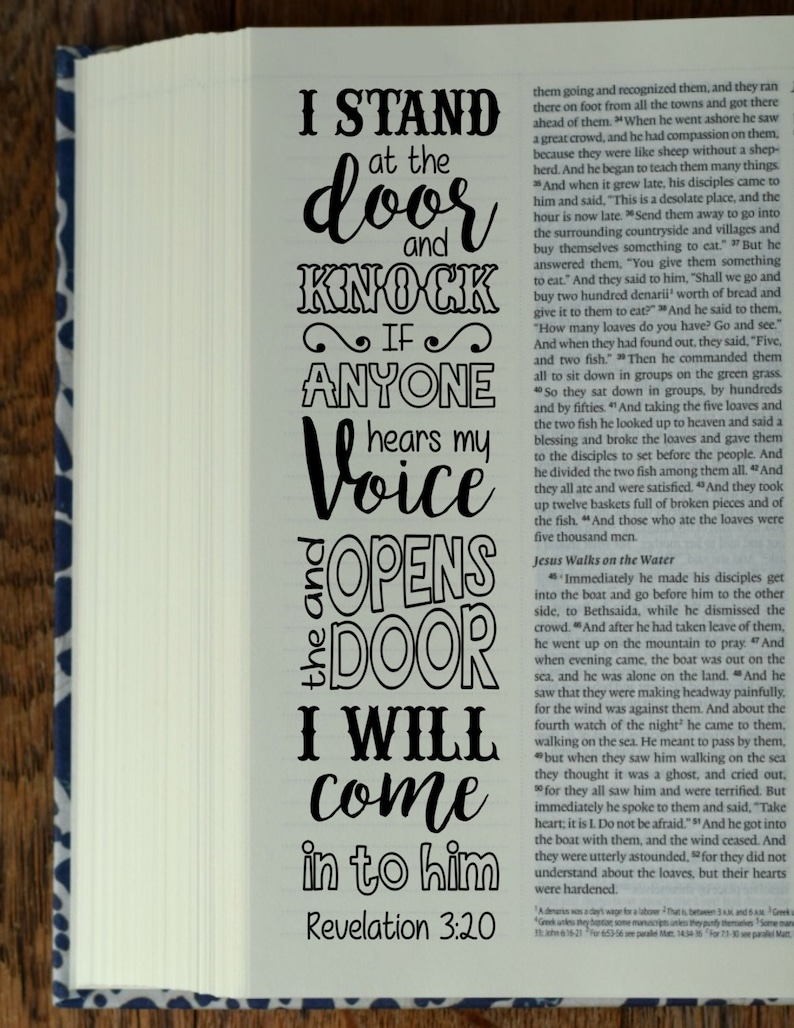 I STAND
at the
door
and
KNOCK
IF
ANYONE
hears my
Voice
and OPENS
the DOOR
I WILL
come
in to him
Revelation 3:20
them going and recognized them, and they ran
there on foot from all the towns and got there
ahead of them. 34 When he went ashore he saw
a great crowd, and he had compassion on them,
because they were like sheep without a shep-
herd. And he began to teach them many things.
35 And when it grew late, his disciples came to
him and said, "This is a desolate place, and the
hour is now late. 36 Send them away to go into
the surrounding countryside and villages and
buy themselves something to eat." 37 But he
answered them, "You give them something
to eat." And they said to him, "Shall we go and
buy two hundred denarii1 worth of bread and
give it to them to eat?" 38 And he said to them,
"How many loaves do you have? Go and see."
And when they had found out, they said, "Five,
and two fish." 39 Then he commanded them
all to sit down in groups on the green grass.
40 So they sat down in groups, by hundreds
and by fifties. 41 And taking the five loaves and
the two fish he looked up to heaven and said a
blessing and broke the loaves and gave them
to the disciples to set before the people. And
he divided the two fish among them all. 42 And
they all ate and were satisfied. 43 And they took
up twelve baskets full of broken pieces and of
the fish. 44 And those who ate the loaves were
five thousand men.
Jesus Walks on the Water
45 Immediately he made his disciples get
into the boat and go before him to the other
side, to Bethsaida, while he dismissed the
crowd. 46 And after he had taken leave of them,
he went up on the mountain to pray. 47 And
when evening came, the boat was out on the
sea, and he was alone on the land. 48 And he
saw that they were making headway painfully,
for the wind was against them. And about the
fourth watch of the night2 he came to them,
walking on the sea. He meant to pass by them,
49 but when they saw him walking on the sea
they thought it was a ghost, and cried out,
50 for they all saw him and were terrified. But
immediately he spoke to them and said, "Take
heart; it is I. Do not be afraid." 51 And he got into
the boat with them, and the wind ceased. And
they were utterly astounded, 52 for they did not
understand about the loaves, but their hearts
were hardened.
1 A denarius was a day's wage for a laborer 2 That is, between 3 A.M. and 6 A.M. 3 Greek
4 Greek unless they baptize; some manuscripts unless they purify themselves 5 Some
33; John 6:16-21 2 For 6:53-56 see parallel Matt. 14:34-36 2 For 7:1-30 see parallel Matt.